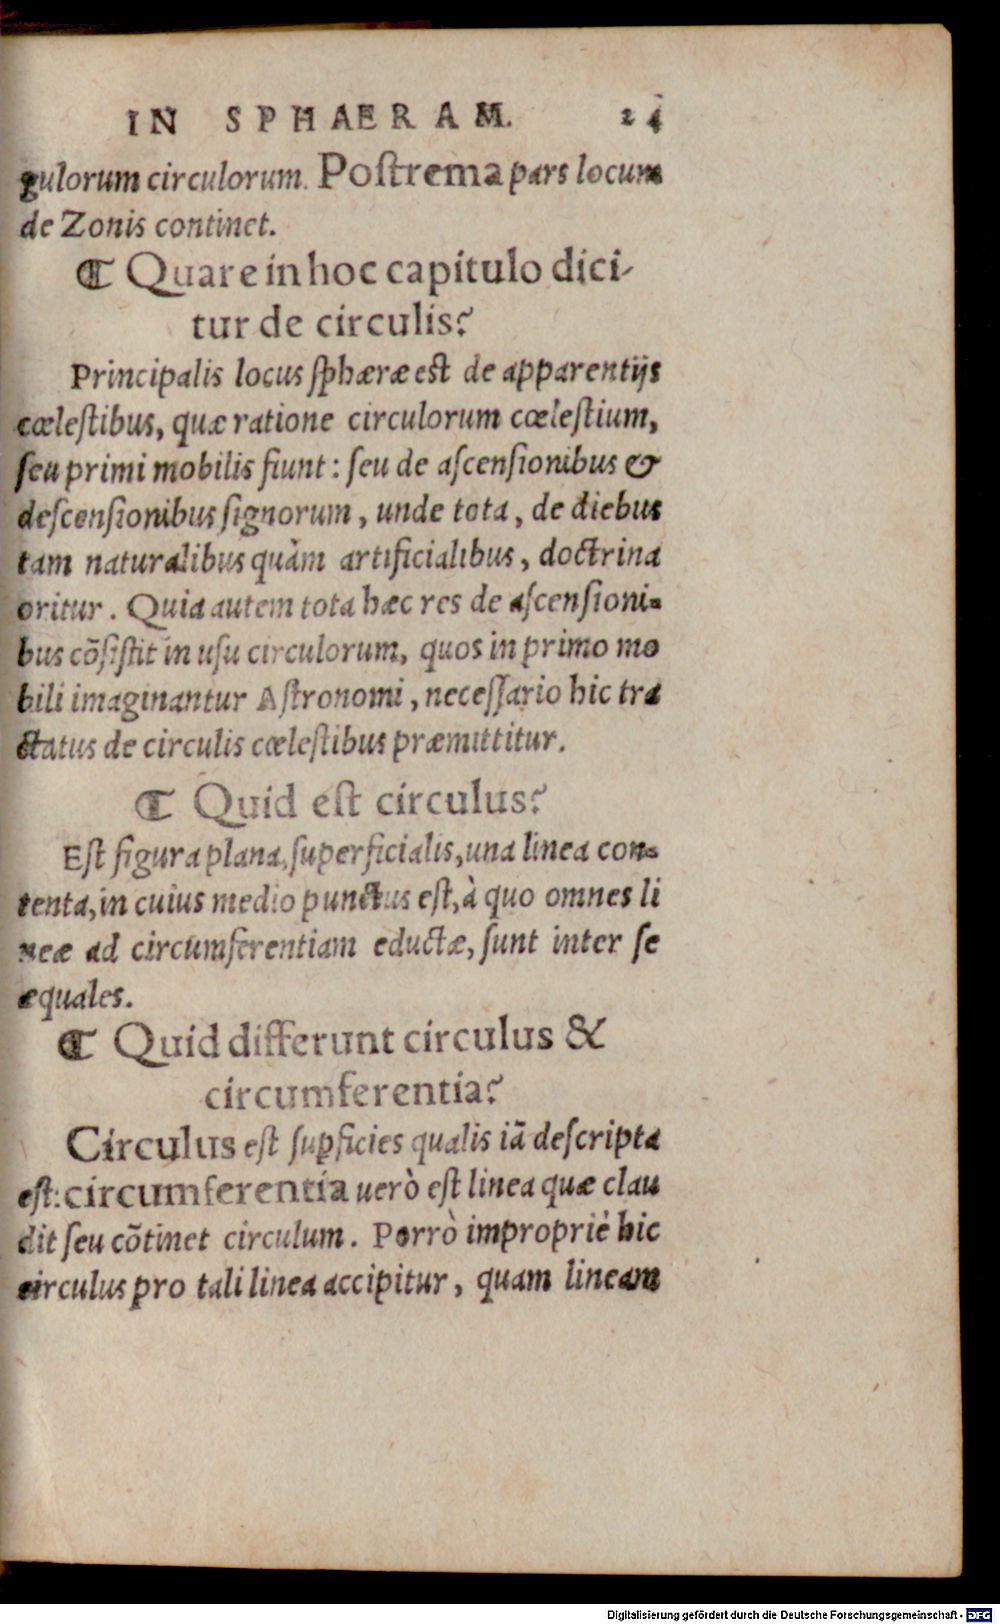 IN SPHAERAM. 24
gulorum circulorum. Postrema pars locum
de Zonis continet.
¶ Quare in hoc capitulo dici-
tur de circulis?
Principalis locus sphæræ est de apparentijs
cœlestibus, quæ ratione circulorum cœlestium,
seu primi mobilis fiunt: seu de ascensionibus &
descensionibus signorum, unde tota, de diebus
tam naturalibus quàm artificialibus, doctrina
oritur. Quia autem tota hæc res de ascensioni-
bus cōsistit in usu circulorum, quos in primo mo
bili imaginantur Astronomi, necessario hic tra
ctatus de circulis cœlestibus præmittitur.
¶ Quid est circulus?
Est figura plana, superficialis, una linea con-
tenta, in cuius medio punctus est, à quo omnes li
neæ ad circumferentiam eductæ, sunt inter se
æquales.
¶ Quid differunt circulus &
circumferentia?
Circulus est supficies qualis iā descripta
est: circumferentia uerò est linea quæ clau
dit seu cōtinet circulum. Porrò impropriè hic
circulus pro tali linea accipitur, quam lineam
Digitalisierung gefördert durch die Deutsche Forschungsgemeinschaft - DFG